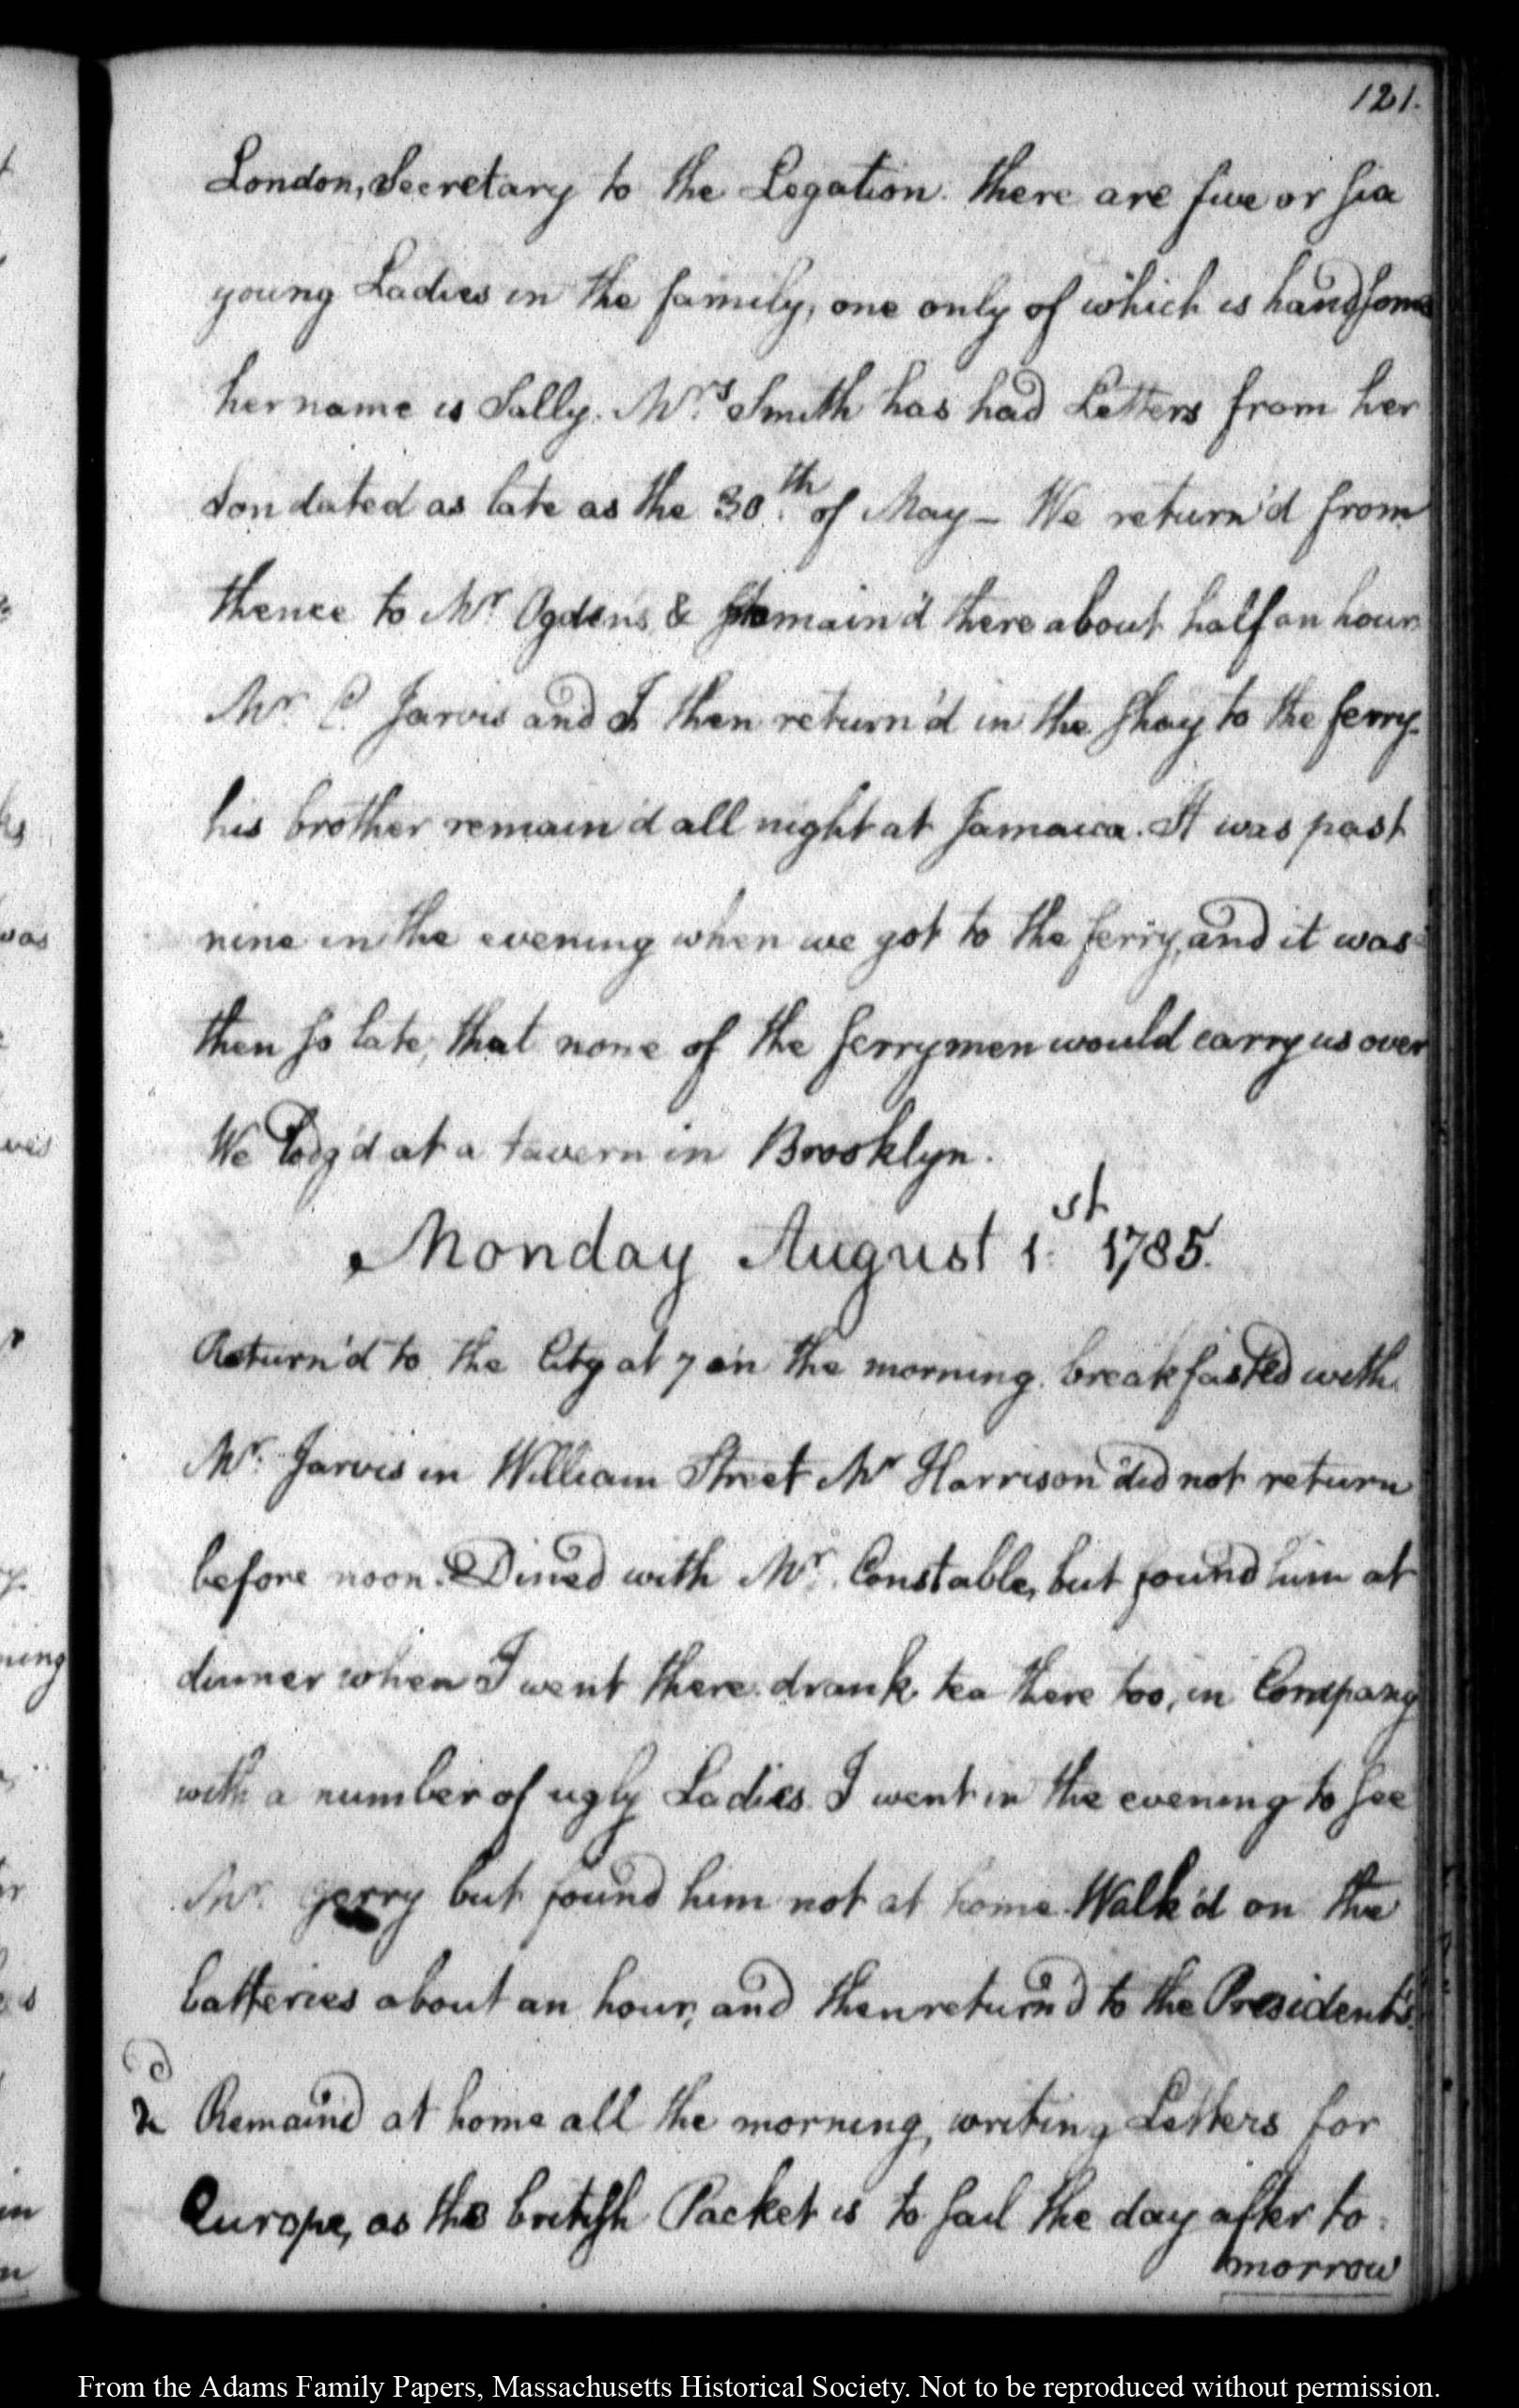 121.
London, Secretary to the Legation. there are five or six
young Ladies in the family, one only of which is handsome
her name is Sally. Mrs. Smith has had Letters from her
Son dated as late as the 30th. of May — We return'd from
thence to Mr. Ogden's, & remain'd there about half an hour.
Mr. C. Jarvis and I then return'd in the Shay to the ferry.
his brother remain'd all night at Jamaica. It was past
nine in the evening when we got to the ferry, and it was
then so late, that none of the ferrymen would carry us over
We lodg'd at a tavern in Brooklyn.
Monday August 1st. 1785.
Return'd to the City at 7 in the morning. breakfasted with
Mr. Jarvis in William Street Mr. Harrison did not return
before noon. Dined with Mr. Constable, but found him at
dinner when I went there. drank tea there too, in Company
with a number of ugly Ladies. I went in the evening to see
Mr. Gerry but found him not at home. Walk'd on the
batteries about an hour, and then return'd to the President's.
2d Remain'd at home all the morning, writing Letters for
Europe, as the british Packet is to sail the day after to-
morrow
From the Adams Family Papers, Massachusetts Historical Society. Not to be reproduced without permission.